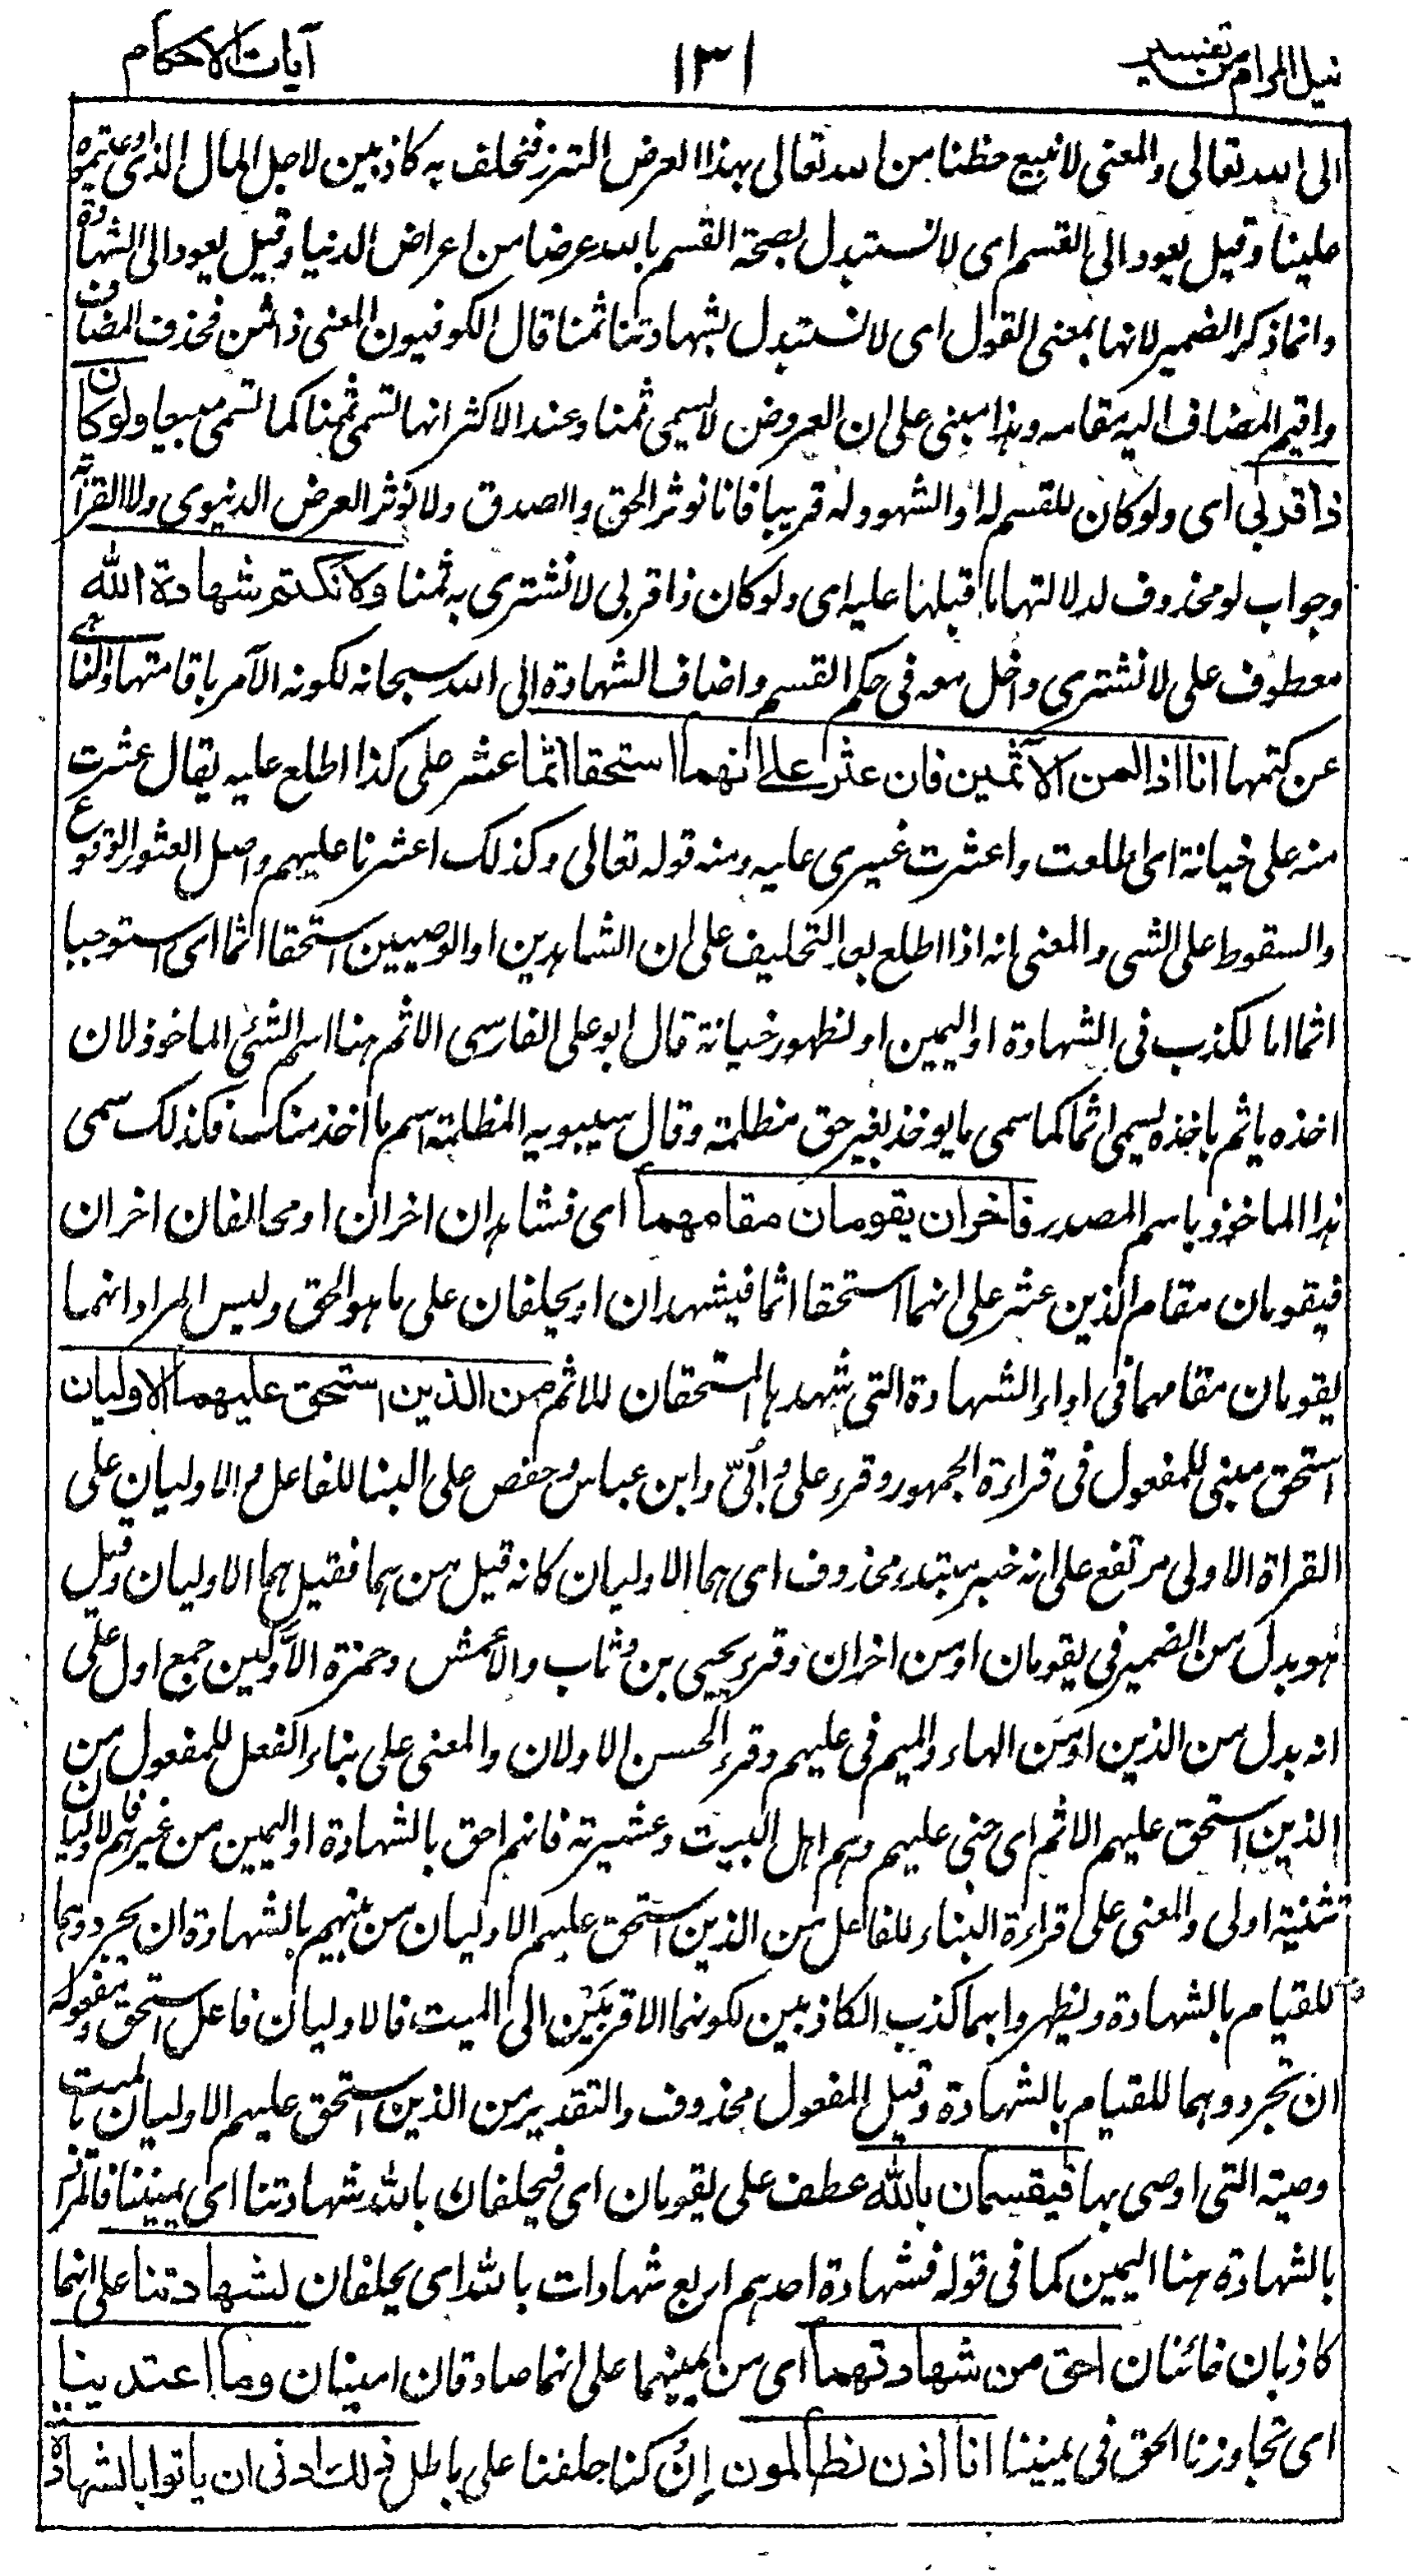 نيل المرام من تفسير ١٣١ آيات الاحكام
الى الله تعالى والمعنى لا نبيع حظنا من الله تعالى بهذا العرض النزر فنحلف به كاذبين لاجل المال الذى ادعيتموه
علينا وقيل يعود الى القسم اى لا نستبدل بصحة القسم بالله عرضا من اعراض الدنيا وقيل يعود الى الشهادة
وانما ذكر الضمير لانها بمعنى القول اى لا نستبدل بشهادتنا ثمنا قال الكوفيون المعنى ذا ثمن فحذف المضاف
واقيم المضاف اليه مقامه وهذا مبنى على ان العروض لا يسمى ثمنا وعند الاكثر انها تسمى ثمنا كما تسمى مبيعا ولو كان
ذا قربى اى ولو كان للقسم له او الشهود له قريبا فانا نوثر الحق والصدق ولا نوثر العرض الدنيوى ولا القرابة
وجواب لو محذوف لدلالتها ما قبلها عليه اى ولو كان ذا قربى لا نشترى به ثمنا ولا نكتم شهادة الله
معطوف على لا نشترى داخل معه فى حكم القسم واضاف الشهادة الى الله سبحانه لكونه الآمر باقامتها والناهى
عن كتمها انا اذا لمن الآثمين فان عثر على انهما استحقا اثما عثر على كذا اطلع عليه يقال عثرت
منه على خيانة اى اطلعت واعثرت غيرى عليه ومنه قوله تعالى وكذلك اعثرنا عليهم واصل العثور الوقوع
والسقوط على الشى والمعنى انه اذا اطلع بعد التحليف على ان الشاهدين او الوصيين استحقا اثما اى استوجبا
اثما اما لكذب فى الشهادة او اليمين او لظهور خيانة قال ابو على الفارسى الاثم هنا اسم الشئ الماخوذ لان
اخذه ياثم باخذه يسمى اثما كما سمى ما يوخذ بغير حق مظلمة وقال سيبويه المظلمة اسم ما اخذ منك فكذلك سمى
هذا الماخوذ باسم المصدر فاخران يقومان مقامهما اى فشاهدان اخران او محالفان اخران
فيقومان مقام الذين عثر على انهما استحقا اثما فيشهدان او يحلفان على ما هو الحق وليس المراد انهما
يقومان مقامهما فى اداء الشهادة التى شهد بها المستحقان للاثم من الذين استحق عليهما الاوليان
استحق مبنى للمفعول فى قراءة الجمهور وقرء على و اُبَىّ وابن عباس وحفص على البنا للفاعل و الاوليان على
القراة الاولى مرتفع على انه خبر مبتدء محذوف اى هما الاوليان كانه قيل من هما فقيل هما الاوليان وقيل
هو بدل من الضمير فى يقومان او من اخران وقرء يحيى بن وثاب والاعمش وحمزة الاوّلين جمع اول على
انه بدل من الذين او من الهاء والميم فى عليهم وقرء الحسن الاولان والمعنى على بناء الفعل للمفعول من
الذين استحق عليهم الاثم اى جنى عليهم وهم اهل البيت وعشيرته فانهم احق بالشهادة او اليمين من غيرهم فالاوليان
تثنية اولى والمعنى على قراءة البناء للفاعل من الذين استحق عليهم الاوليان من بينهم بالشهادة ان يجردوهما
للقيام بالشهادة ويظهروا بهما كذب الكاذبين لكونهما الاقربَيْن الى الميت فالاوليان فاعل استحق ومفعوله
ان يجردوهما للقيام بالشهادة وقيل المفعول محذوف والتقدير من الذين استحق عليهم الاوليان بالميت
وصيته التى اوصى بها فيقسمان بالله عطف على يقومان اى فيحلفان بالله شهادتنا اى يميننا فالمراد
بالشهادة هنا اليمين كما فى قوله فشهادة احدهم اربع شهادات بالله اى يحلفان لشهادتنا على انهما
كاذبان خائنان احق من شهادتهما اى من يمينهما على انهما صادقان امينان وما اعتدينا
اى تجاوزنا الحق فى يميننا انا اذن لظالمون اِنْ كنا حلفنا على باطل ذلك ادنى ان ياتوا بالشهادة